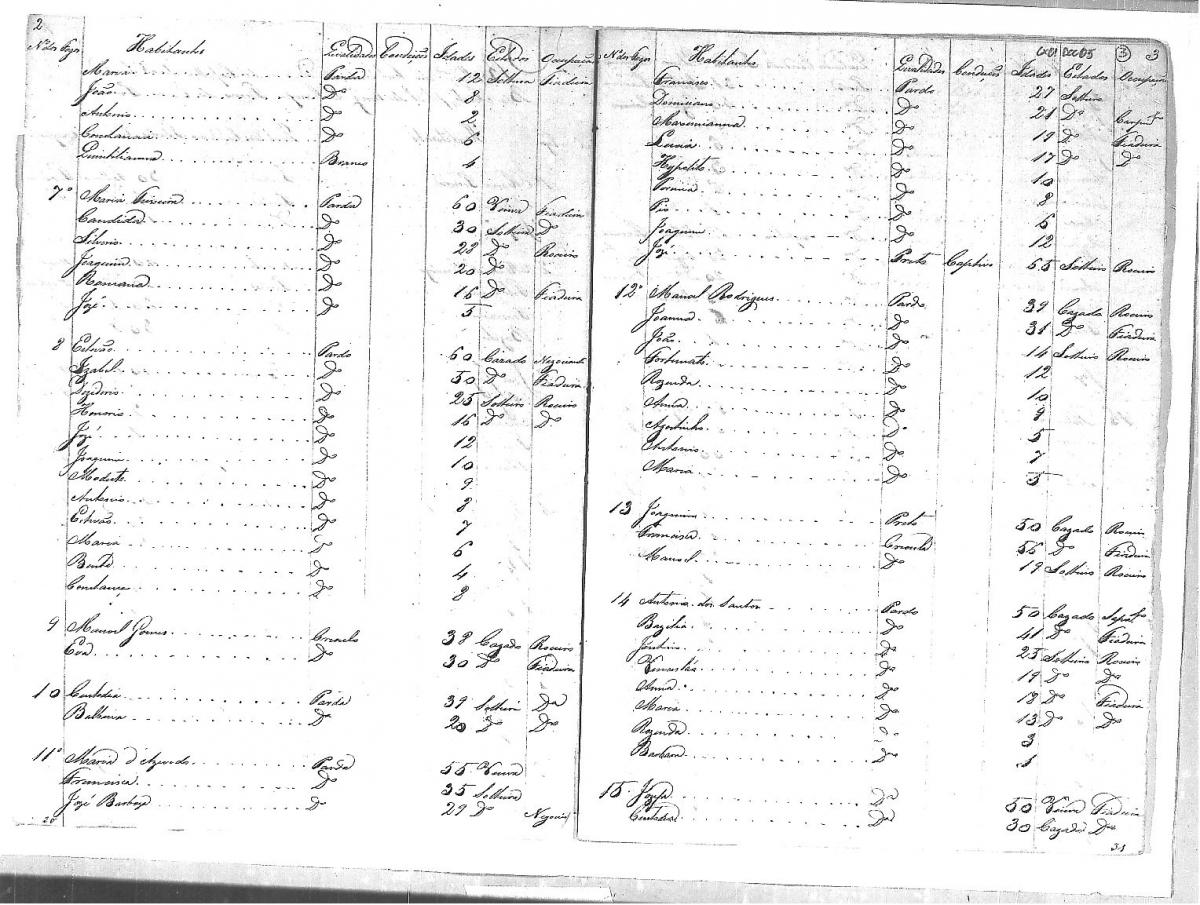 2
Nº dos Fogos Habitantes Qualidades Condicão Idades Estados Ocupação
Maria Parda 12 Solteira Fiadeira
João Dº 8
Antonio Dº 2
Constancia Dº 6
Branco 4
7º Maria Parda 60 Viuva Fiadeira
Candida Dº 30 Solteira Dº
Silverio Dº 22 Dº Roceiro
Joaquim Dº 20 Dº
Romana Dº 16 Dº Fiadeira
Jozé Dº 5
8 Estevão Pardo 60 Cazado Negociante
Izabel Dº 50 Dº Fiadeira
Dº 25 Solteiro Roceiro
Honorio Dº 16 Dº Dº
Jozé Dº 12
Joaquim Dº 10
Modesto Dº 9
Antonio Dº 8
Estevão Dº 7
Maria 6
Bento Dº 4
Constança Dº 8
9 Manoel Gomes Crioulo 38 Cazado Roceiro
Eva Dº 30 Dº Fiadeira
10 Custodia Parda 39 Solteira Dª
Balbina Dº 20 Dº Dº
11º Maria d'Azevedo Parda 55 Viuva
Francisca Dº 35 Solteira
Jozé Barboza Dº 29 Dº
28
CX01 DOC05 3 3
Nº dos Fogos Habitantes Qualidades Condicão Idades Estados Ocupação
Francisco Pardo 27 Solteiro
Domiciano Dº 21 Dº
Maximianna Dº 19 Dº Fiadeira
Dº 17 Dº Dº
Hypolito Dº 10
Dº 8
Pio Dº 6
Joaquim Dº 12
Jozé Preto Captivo 55 Solteiro Roceiro
12º Manoel Rodrigues Pardo 39 Cazado Roceiro
Joanna Dº 31 Dº Fiadeira
João Dº 14 Solteiro Roceiro
Fortunato Dº 12
Rozenda Dº 10
Anna Dº 9
Agostinho Dº 5
Antonio Dº 7
Maria Dº 3
13 Joaquim Preto 50 Cazado Roceiro
Francisca Crioula 56 Dº Fiadeira
Manoel Dº 19 Solteiro Roceiro
14 Antonio dos Santos Pardo 50 Cazado
Bazilia Dº 41 Dº Fiadeira
Dº 25 Solteiro Roceiro
Dº 19 Dº Dº
Anna Dº 18 Dº Fiadeira
Maria Dº 13 Dº Dº
Rozenda 3
Barbara Dº 1
15 Dª 50 Viuva Fiadeira
Custodia Dª 30 Cazada Dª
31